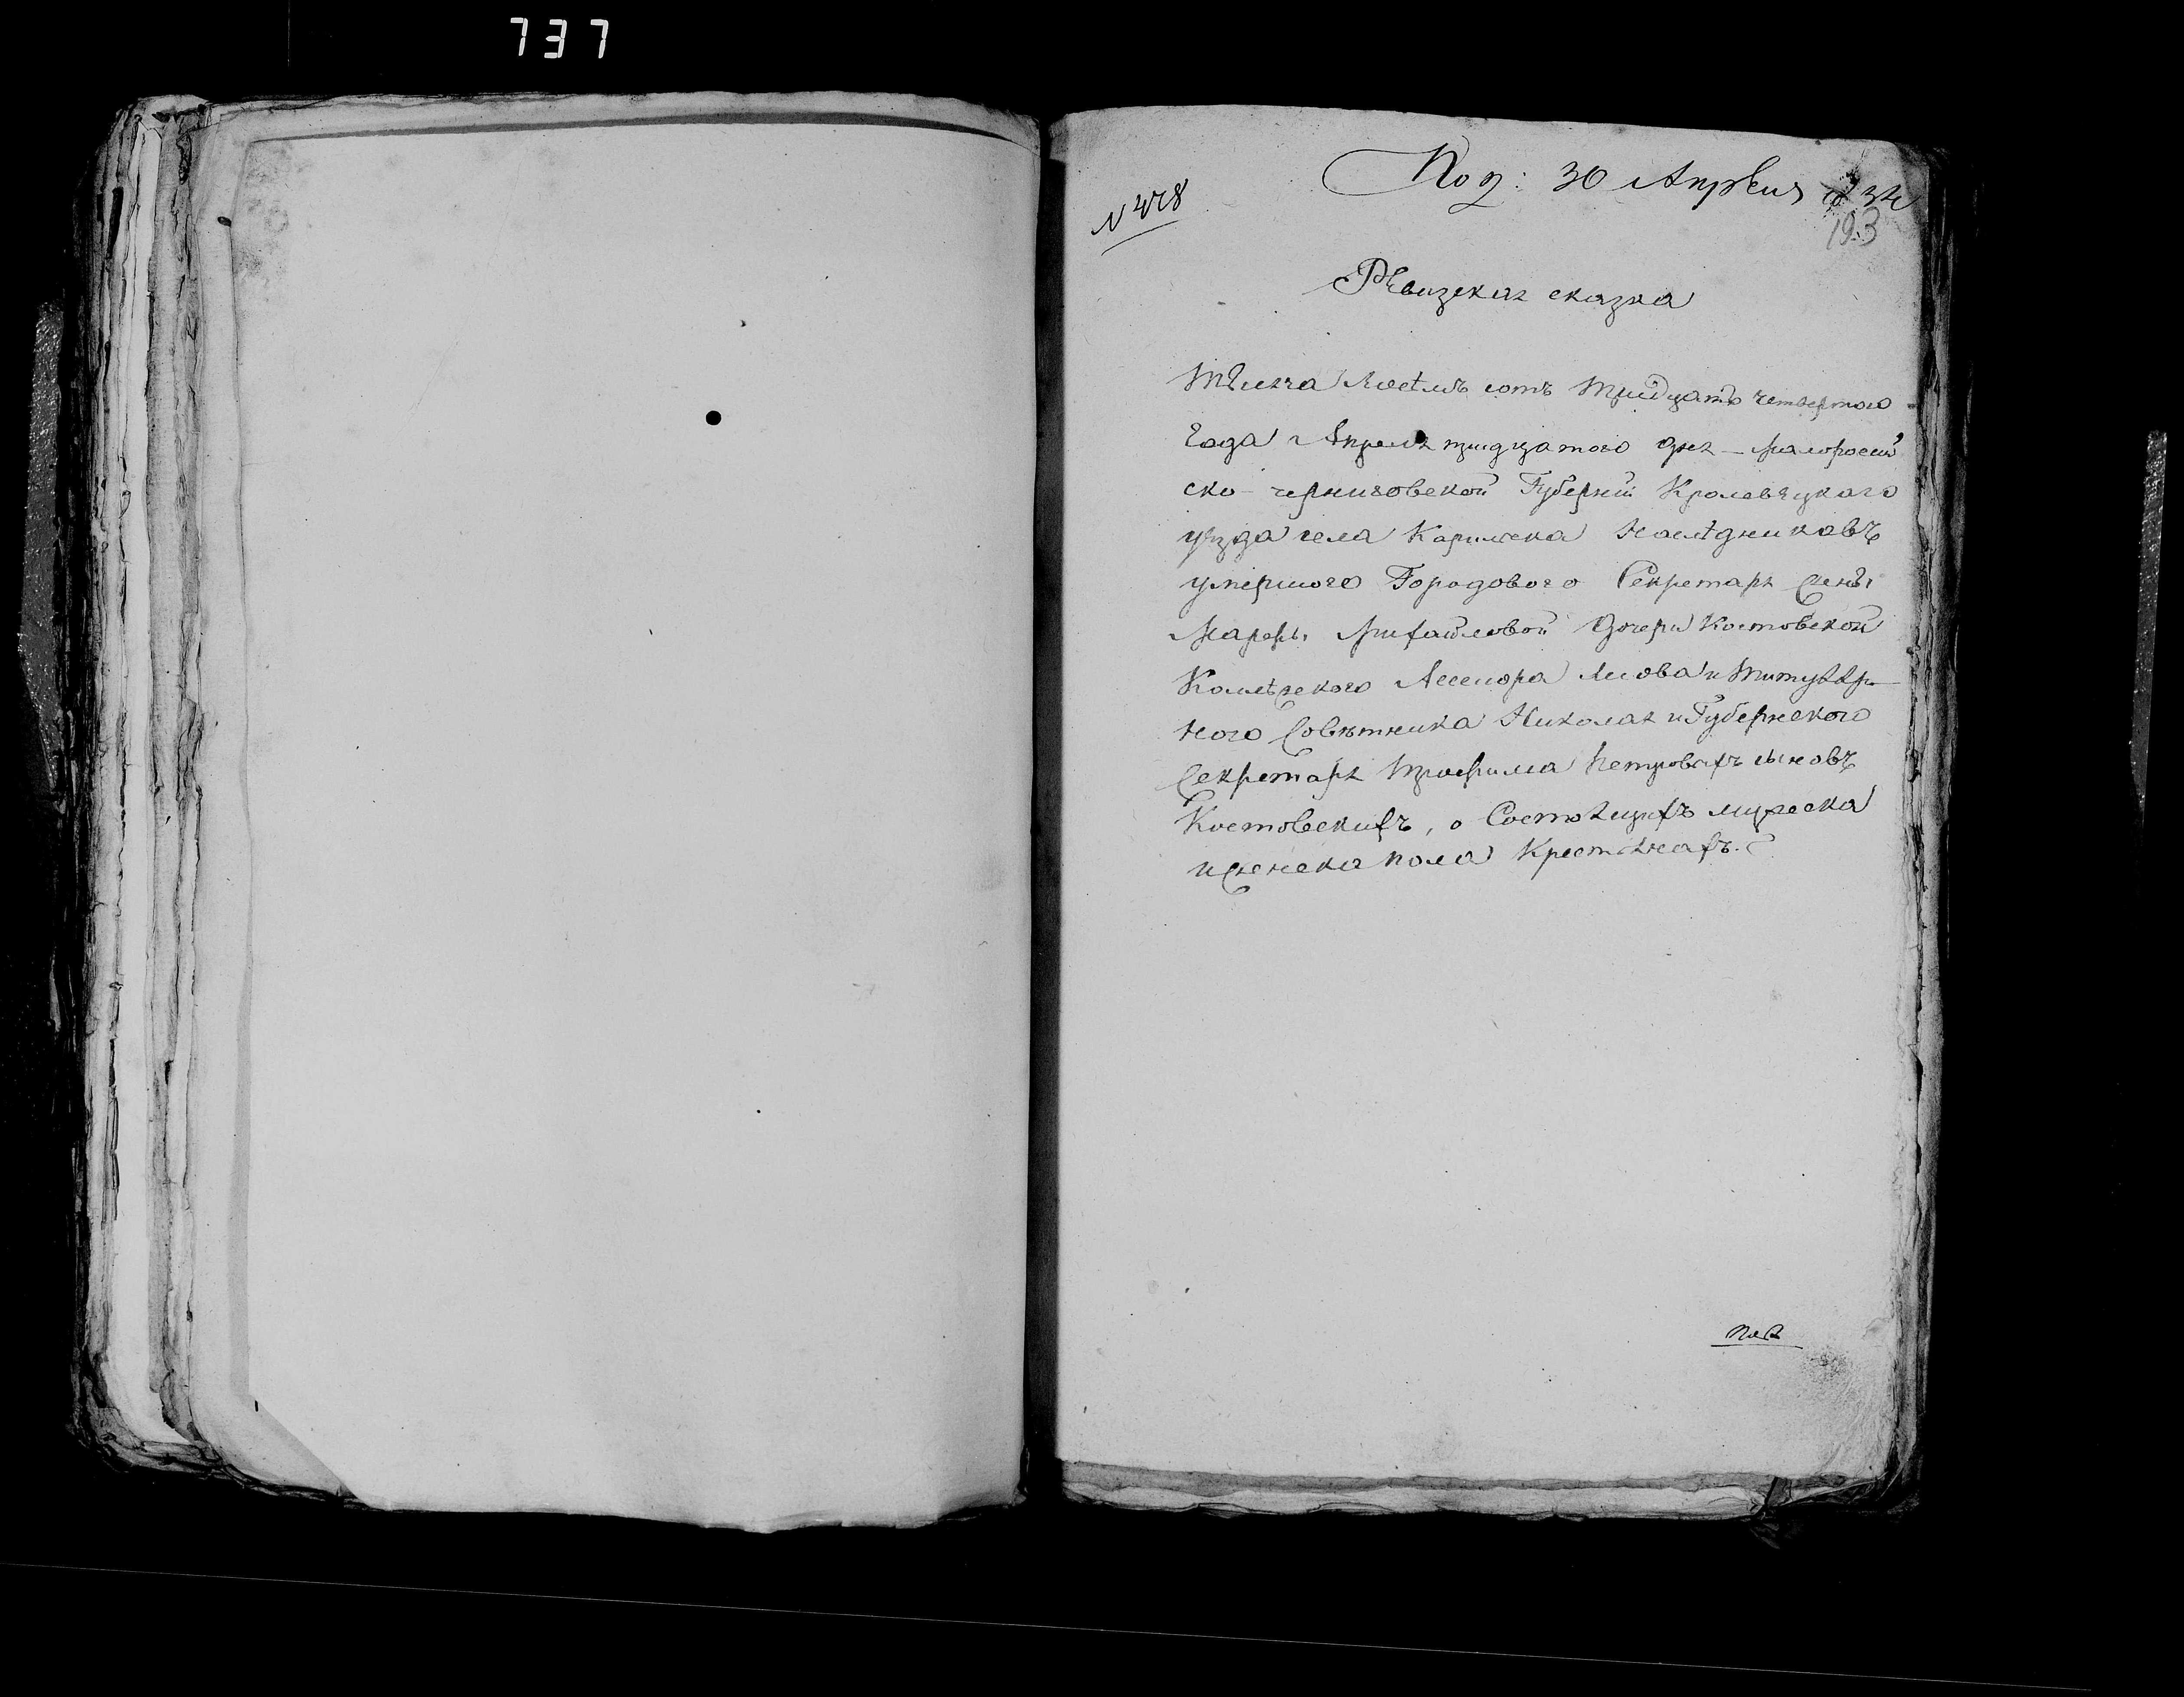 737
Под: 30 Апреля 834
N 428
193
Ревизская сказка
Тысяча восемъ сотъ тридцать четвертого
года Апреля тридцатого дня – малоросий
ско – черниговской Губернии Кролевецкого
уезда села Карилска Наследниковъ
умершого Городового Секретаря жены
Марфы Михайловой дочери Костовской
Колежского Асесора Лвова и титуляр
ного Советника Николая и Губернского
Секретаря Трофима Петровыхъ сыновъ
Костовскихъ, о Состоящихъ мужеска
и женска пола Крестянахъ.